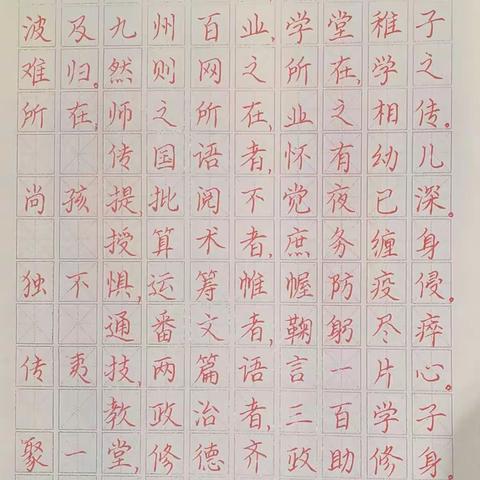 波及九州百业,学堂稚子
难归。然则网之所在,学之
所在,师之所在,业之相传。
传国语者,怀有幼儿
尚孩提,批阅不觉夜已深。
授算术者,庶务缠身
独不惧,运筹帷幄防疫侵。
通番文者,鞠躬尽瘁
传夷技,两篇语言一片心。
教政治者,三百学子
聚一堂,修德齐政助修身。